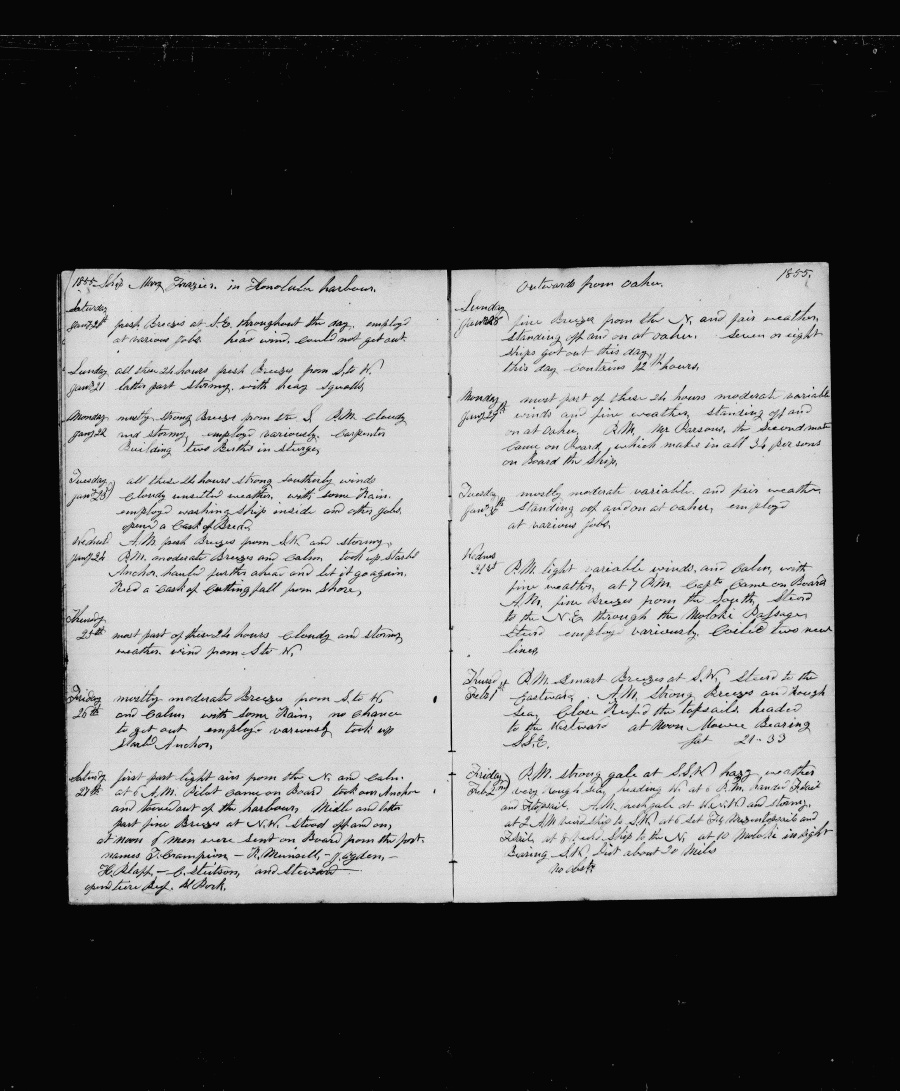 1855. Ship Mary Frazier. in Honolulu harbour.
Saturday
Jany 20th fresh Breezes at S.E. throughout the day, employd
at various Jobs. head wind. Could not get out.
Sunday all these 24 hours fresh Breezes from S. to W.
Jany 21 latter part stormy, with heavy squalls,
Monday mostly strong Breezes from the S. P.M. Cloudy
Jany 22 and stormy, employd variously. Carpenter
Building two Births in steerge,
Tuesday all these 24 hours strong southerly winds
Jany 23d Cloudy unsetled weather. with some Rain.
employd washing ship inside and other Jobs.
opend a Cask of Bread,
Wednesd A.M. fresh Breezes from S.W. and stormy,
Jany 24 P.M. moderate Breezes and Calm took up starbd
Anchor hauld further ahead and let it go again.
Recd a Cask of Cutting fall from shore,
Thursday
25th most part of these 24 hours Cloudy and stormy
weather. wind from S to W,
Friday mostly moderate Breezes from S. to W,
26th and Calms with some Rain, no chance
to get out employd variously took up
starbd Anchor,
Saturday first part light airs from the N. and Calm.
27th. at 6 A.M. Pilot Came on Board took our Anchor
and towed out of the harbour, Midle and latter
part fine Breezes at N.W. stood off and on,
at noon 6 men were sent on Board from the fort.
names T. Crampion — R. Munsell, — J. Ogden, —
H. Stapf — C. Stutson, and Steward
opend tierce Beef. Bl Pork.
Outwards from Oahu. 1855.
Sunday
Jany 28 fine Breezes from the N. and fair weather,
standing off and on at oahu. seven or eight
ships got out this day,
this day contains 12 hours,
Monday most part of these 24 hours moderate variable
Jany 29th winds and fine weather, standing off and
on at oahu, P.M. Mr Parsons, the second mate
Came on Board, which makes in all 34 persons
on Board the Ship,
Tuesday mostly moderate variable. and fair weather
Jany 30th standing off and on at oahu, employd
at various Jobs,
Wednes
31st P.M. light variable winds, and Calm, with
fine weather, at 7 P.M. Capt. Came on Board
A.M. fine Breezes from the South, steerd
to the N.E. through the Moloki Passage
steerd employd variously, Coiled two new
lines,
Thursd P.M. Smart Breezes at S.W, steerd to the
Feb 1st Eastward, A.M. strong Breezes and Rough
sea, Close Reefd the topsails headed
to the Westward at Noon Mowee Bearing
S.S.E. Lat 21-33
Friday P.M. strong gale at S.S.W hazy weather
Feb 2nd very rough sea, heading W. at 6 P.M.
and at W.N.W and stormy.
at 2 AM wore ship to S.W. at 6 set
at 8 wore ship to the N. at 10 Moloki in sight
Bearing S.W, Dist about 20 Miles
no obs